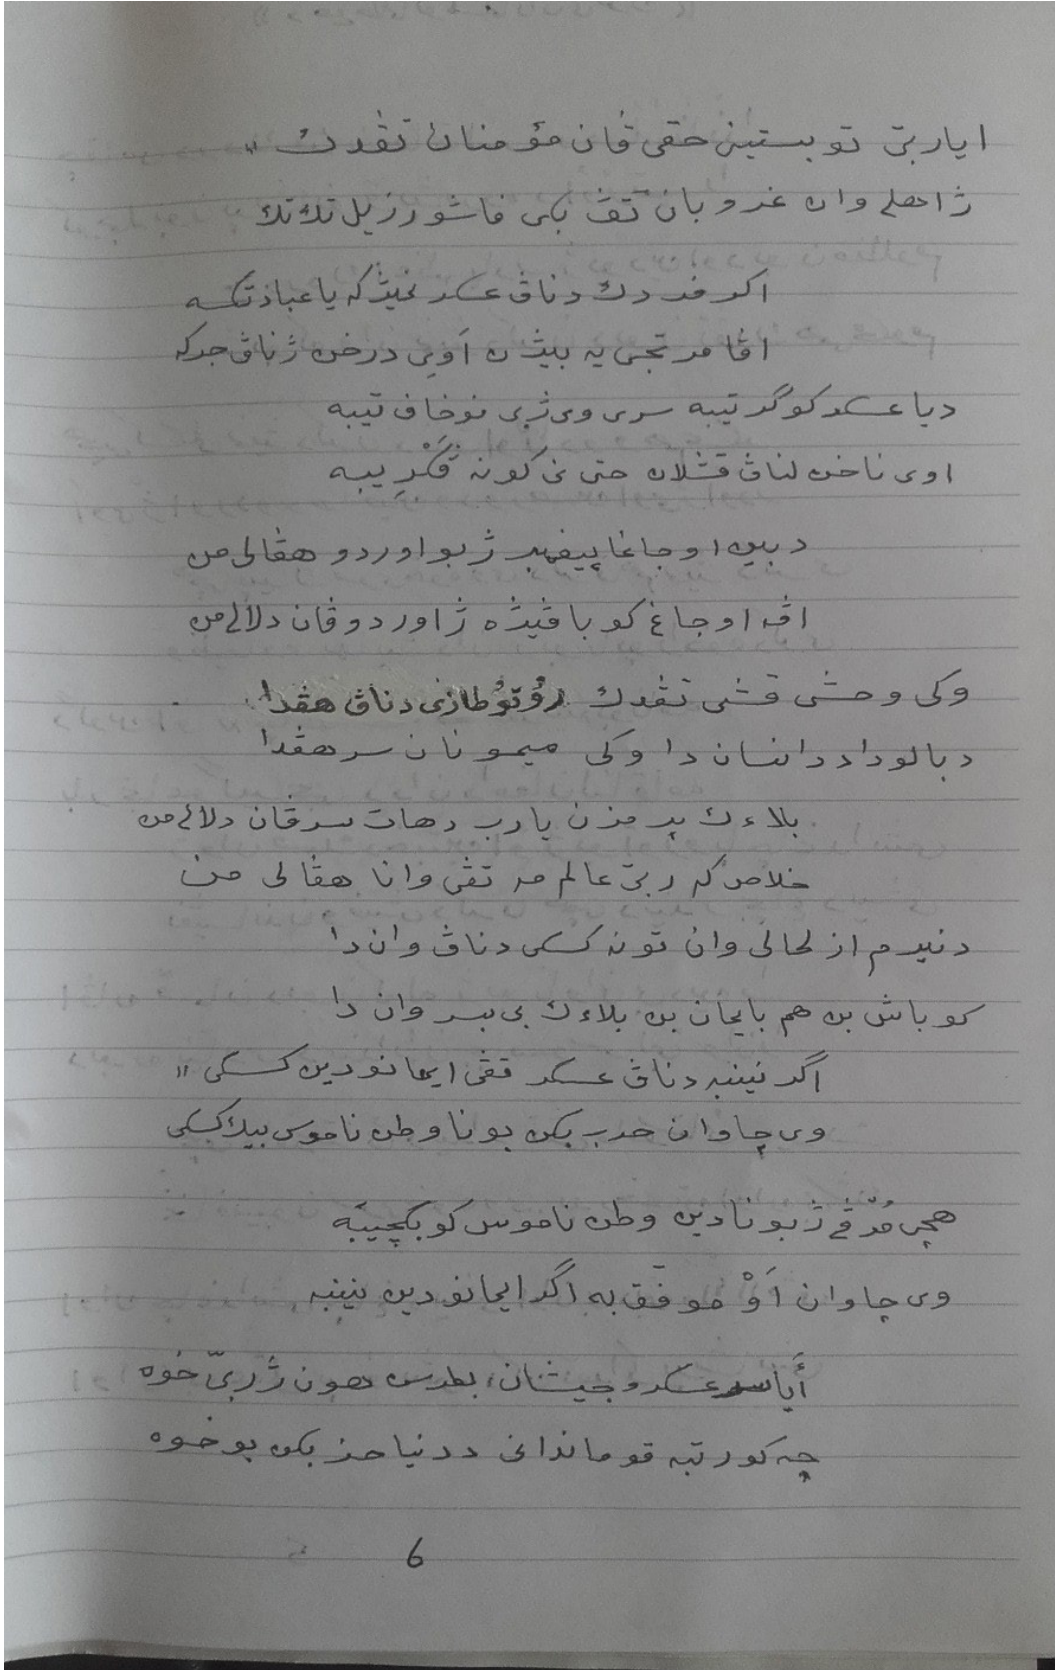 ایاربی تو بستینی حقی ڤان مؤمنان تڤدك "
ژ اهلی وان غدو بان تڤ بکی فاشور زیل تك تك
اکر فدرك دناڤ عسکر نمیژکه یا عبادتکسه
اڤا مرتجی یه بیژن اَوِی درخن ژناڤ جرکه
دیا عسکر کو گرتیبه سری وی ژبی نوخاف تیبه
اوی ناخن لناڤ قشلان حتی نی کونه ڤکَرِیبه
دبین اوجاغا پیغمبر ژبو اوردو هڤالی من
اڤه اوجاغ کو باڤیژه ژاوردو ڤان دلالی من
وکی وحشی قشی تڤدك رؤتؤطازی دناڤ هڤدا
دبالو داد دانسان دا وکی میمونان سرهڤدا
بلاءك پر مزن یارب دهات سرڤان دلالی من
خلاص که ربی عالم مه تڤی وانا هڤالی من
دنیرم از لحالی وان تونه کسی دناڤ وان دا
کو باش بن هم بایمان بن بلاءك بی بسر وان دا
اگر نینبه دناڤ عسکر قڤی ایمانودین کسکی "
وی چاوان حرب بکن بونا وطن ناموس بیلکسکی
هچی مُرّڤی ژبونا دین وطن ناموس کو بکچییبَه
وی چاوان اَوْ موفّق به اگر ایمانو دین نینبه
أیا سرعسکرو جیشان، بطرسن هون ژربّی خوه
چه کو رتبه قوماندانی ددنیا حز بکن بو خوه
6